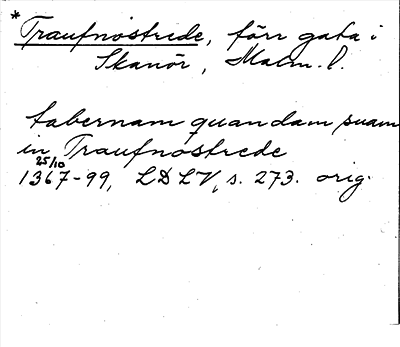 *Traufnøstrede, förr gata i
Skanör, Malm. l.
tabernam quandam suam
in Traufnostrede
25/10
1367-99, LDLV, s. 273. orig.